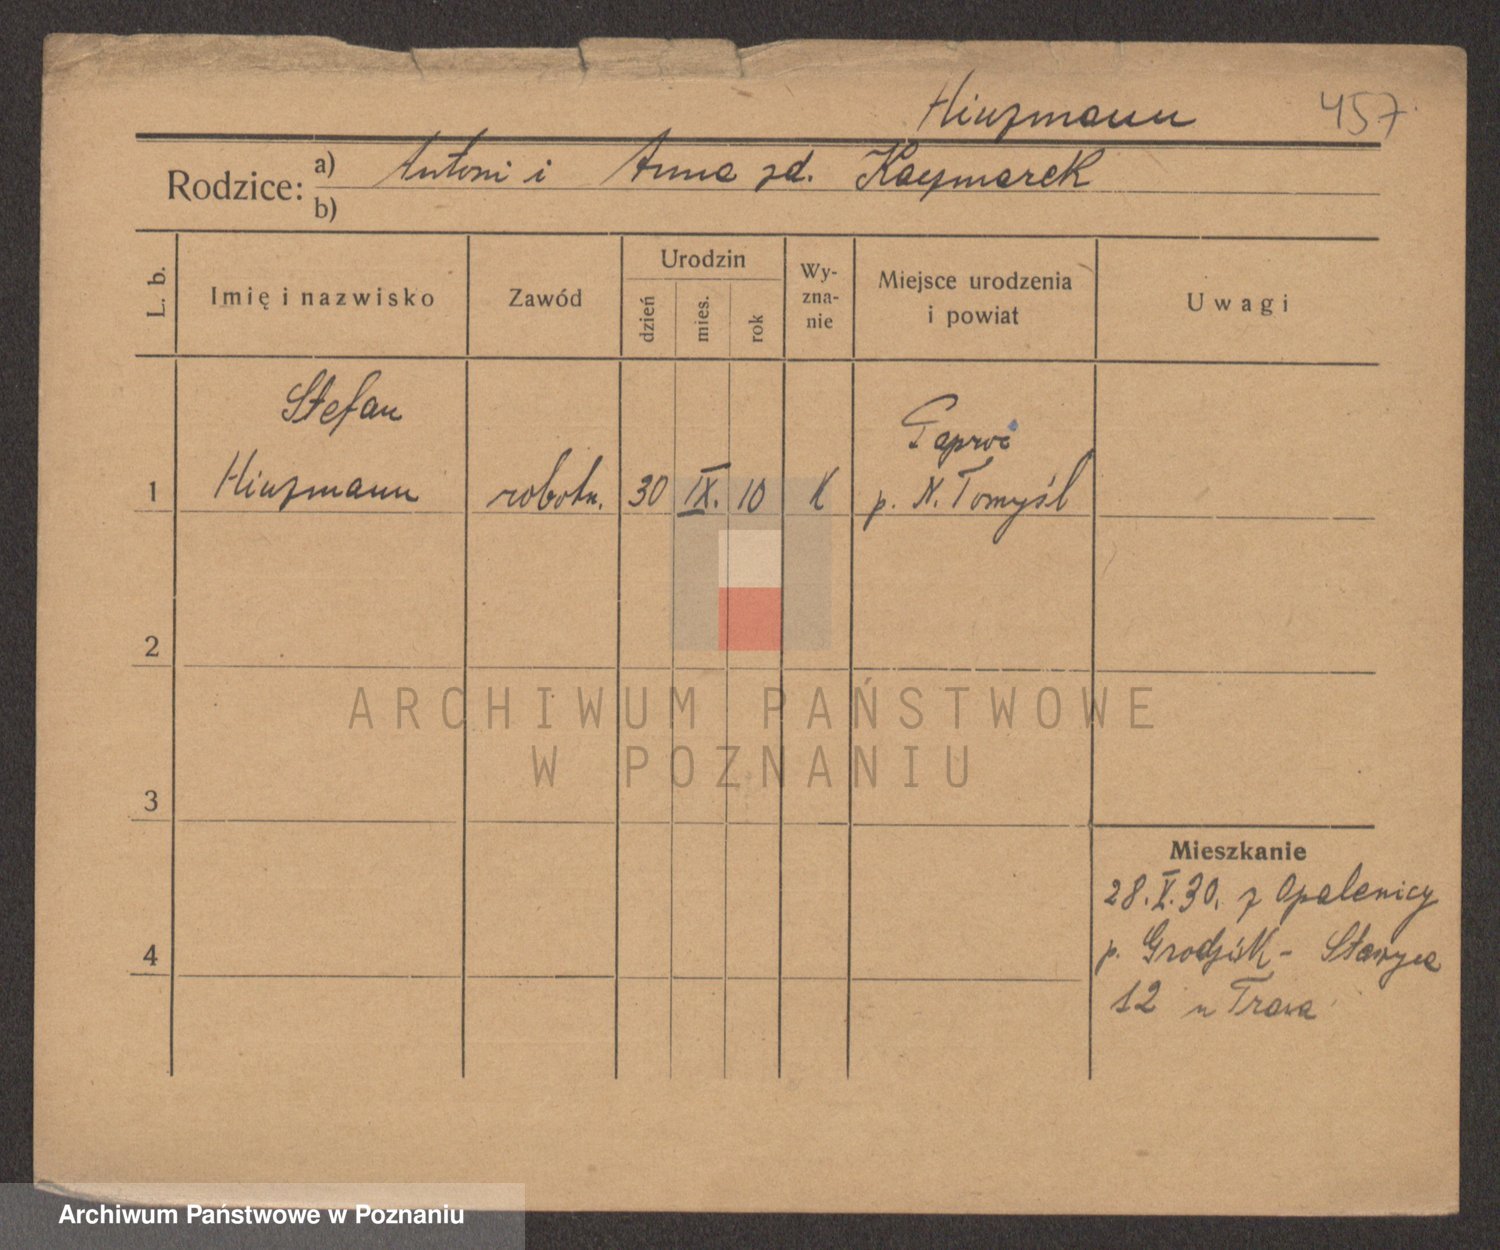 Hinzmann 457
Rodzice: a) Antoni i Anna zd. Kaczmarek
b)
L. b. Imię i nazwisko Zawód Urodzin dzień mies. rok Wy-zna-nie Miejsce urodzenia i powiat Uwagi
Stefan
1 Hinzmann robotn. 30 IX. 10 K p. N. Tomyśl
2
3
4
ARCHIWUM PAŃSTWOWE
W POZNANIU
Mieszkanie
28.X.30. z Opalenicy
p. Grodzisk -
12 u
Archiwum Państwowe w Poznaniu